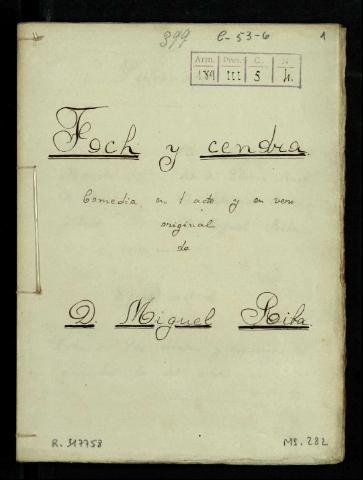 399 C-53-6 1
Arm. Pres. C. N.
189 III 5 4.
Foch y cendra.
Comedia, en 1 acte y en vers
original
de
D. Miguel Riba.
R. 317758 MS. 282